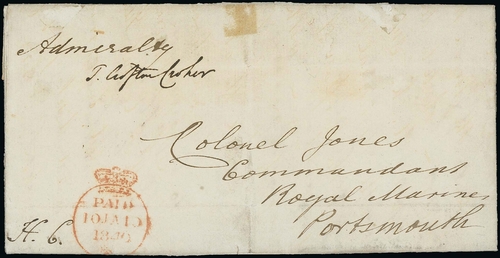 Admiralty
T. Crofton Croker
Colonel Jones
Commandant
Royal Marines
Portsmouth
PAID
10 JA 10
1840
H. 6.